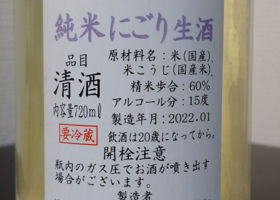 純米にごり生酒
品目
清酒
内容量720ml
要冷蔵
原材料名：米(国産)、
米こうじ(国産米)
精米歩合：60%
アルコール分：15度
製造年月：2022.01
飲酒は20歳になってから。
開栓注意
瓶内のガス圧でお酒が噴き出す
場合がございます。
製造者